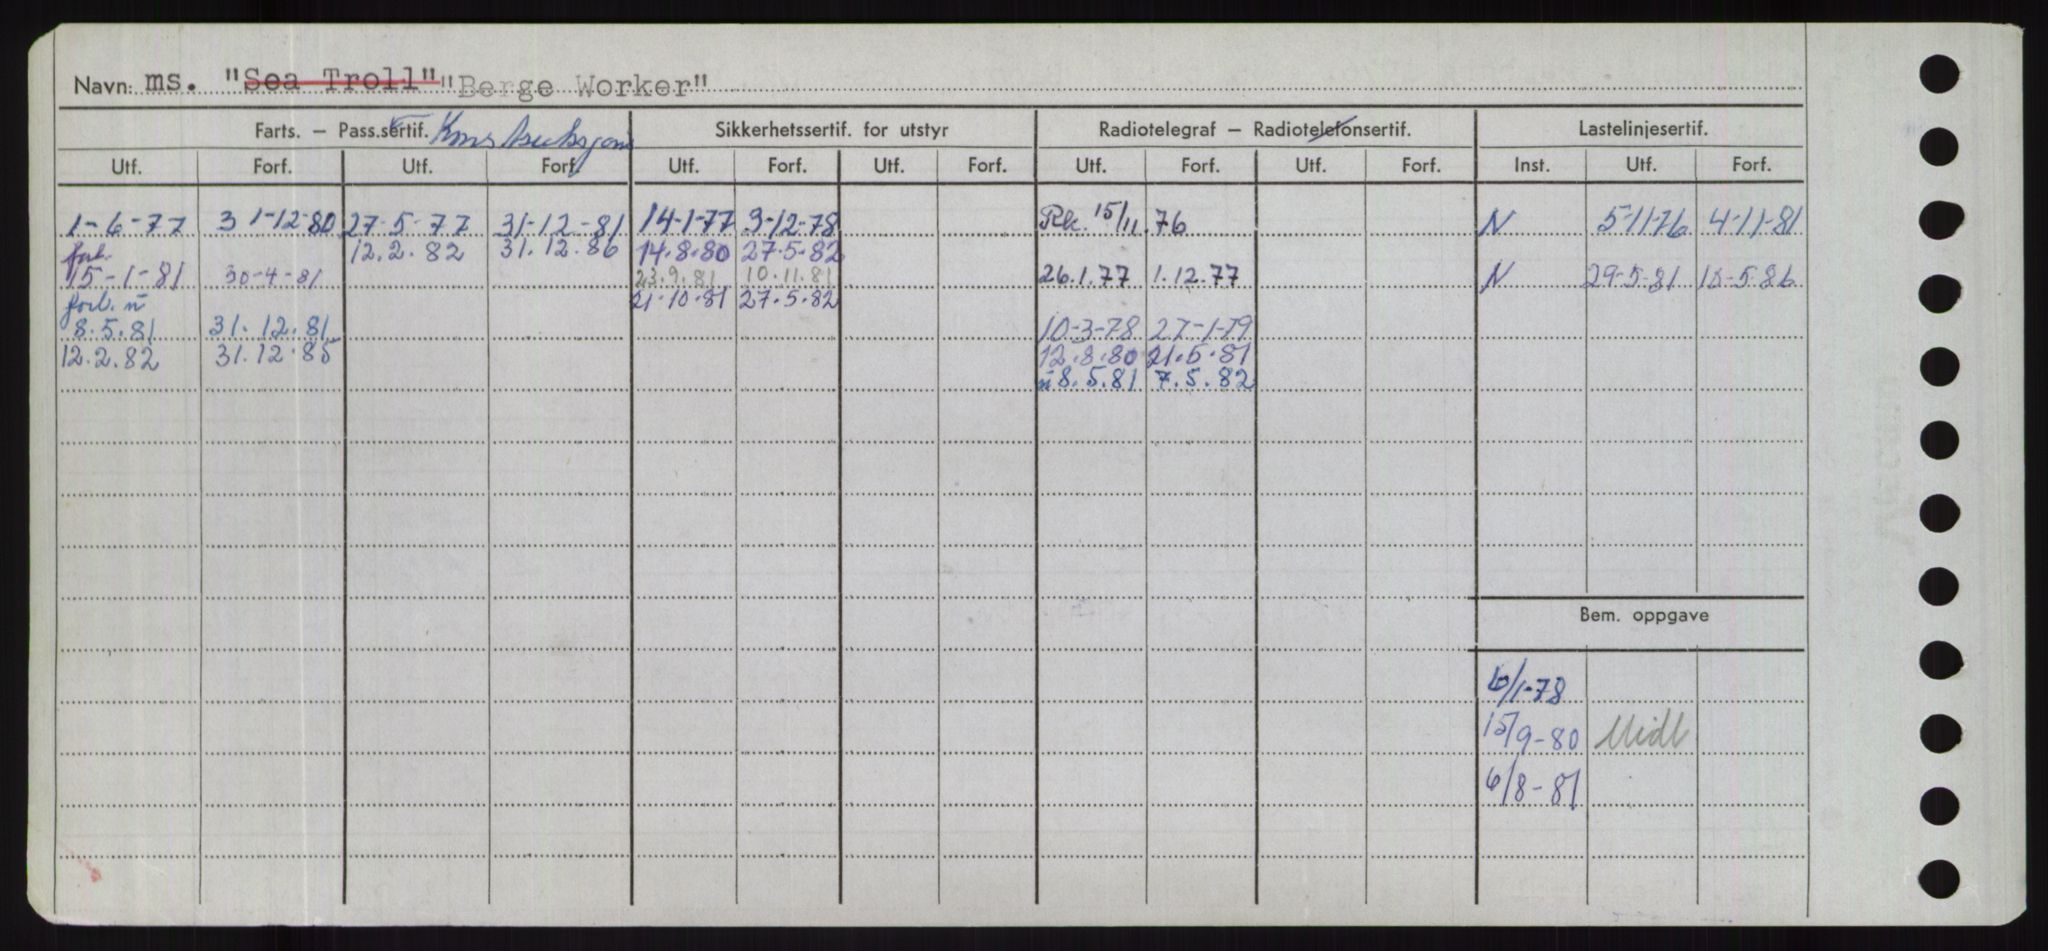 Navn: ms. "Sea Troll" "Berge Worker"
Farts. – Pass.sertif. Konstruksjons Sikkerhetssertif. for utstyr Radiotelegraf – Radiotelefonsertif. Lastelinjesertif.
Utf. Forf. Utf. Forf. Utf. Forf. Utf. Forf. Utf. Forf. Utf. Forf. Inst. Utf. Forf.
1-6-77 31-12-80 27-5-77 31-12-81 14-1-77 3-12-78 Rk. 15/11.76 N 5-11-76 4-11-81
forl. 12.2.82 31.12.86 14.8.80 27.5.82
15-1-81 30-4-81 23.9.81 10.11.81 26.1.77 1.12.77 N 29-5-81 18-5-86
forl. ū 21.10.81 27.5.82
8.5.81 31.12.81 10-3-78 27-1-79
12.2.82 31.12.85 12.8.80 21.5.81
ū 8.5.81 7.5.82
Bem. oppgave
6/1-78
15/9-80 Midl
6/8-81